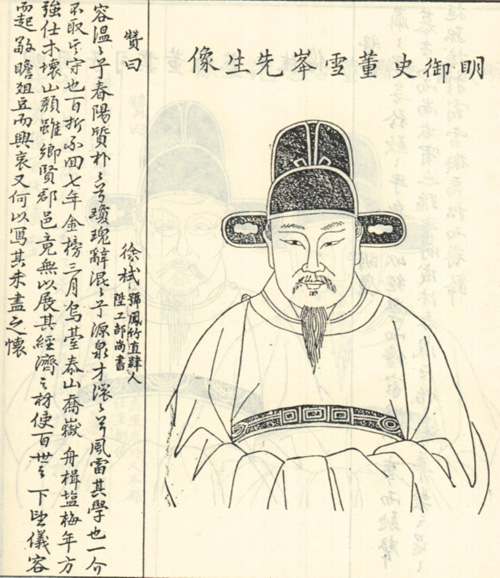 明御史董雪岑先生像
贊曰
徐栻
號鳳竹直隸人
陞工部尚書
容溫〻乎春陽質朴〻兮瓊瑰辭混〻乎源泉才滾〻兮風雷其學也一介
不取其守也百折不回七年金榜三月烏臺泰山喬嶽舟楫塩梅年方
強仕木壞山頹雖鄉賢郡邑竟無以展其經濟之材使百世之下儀容
而起敬瞻俎豆而興哀又何以寫其未盡之懷